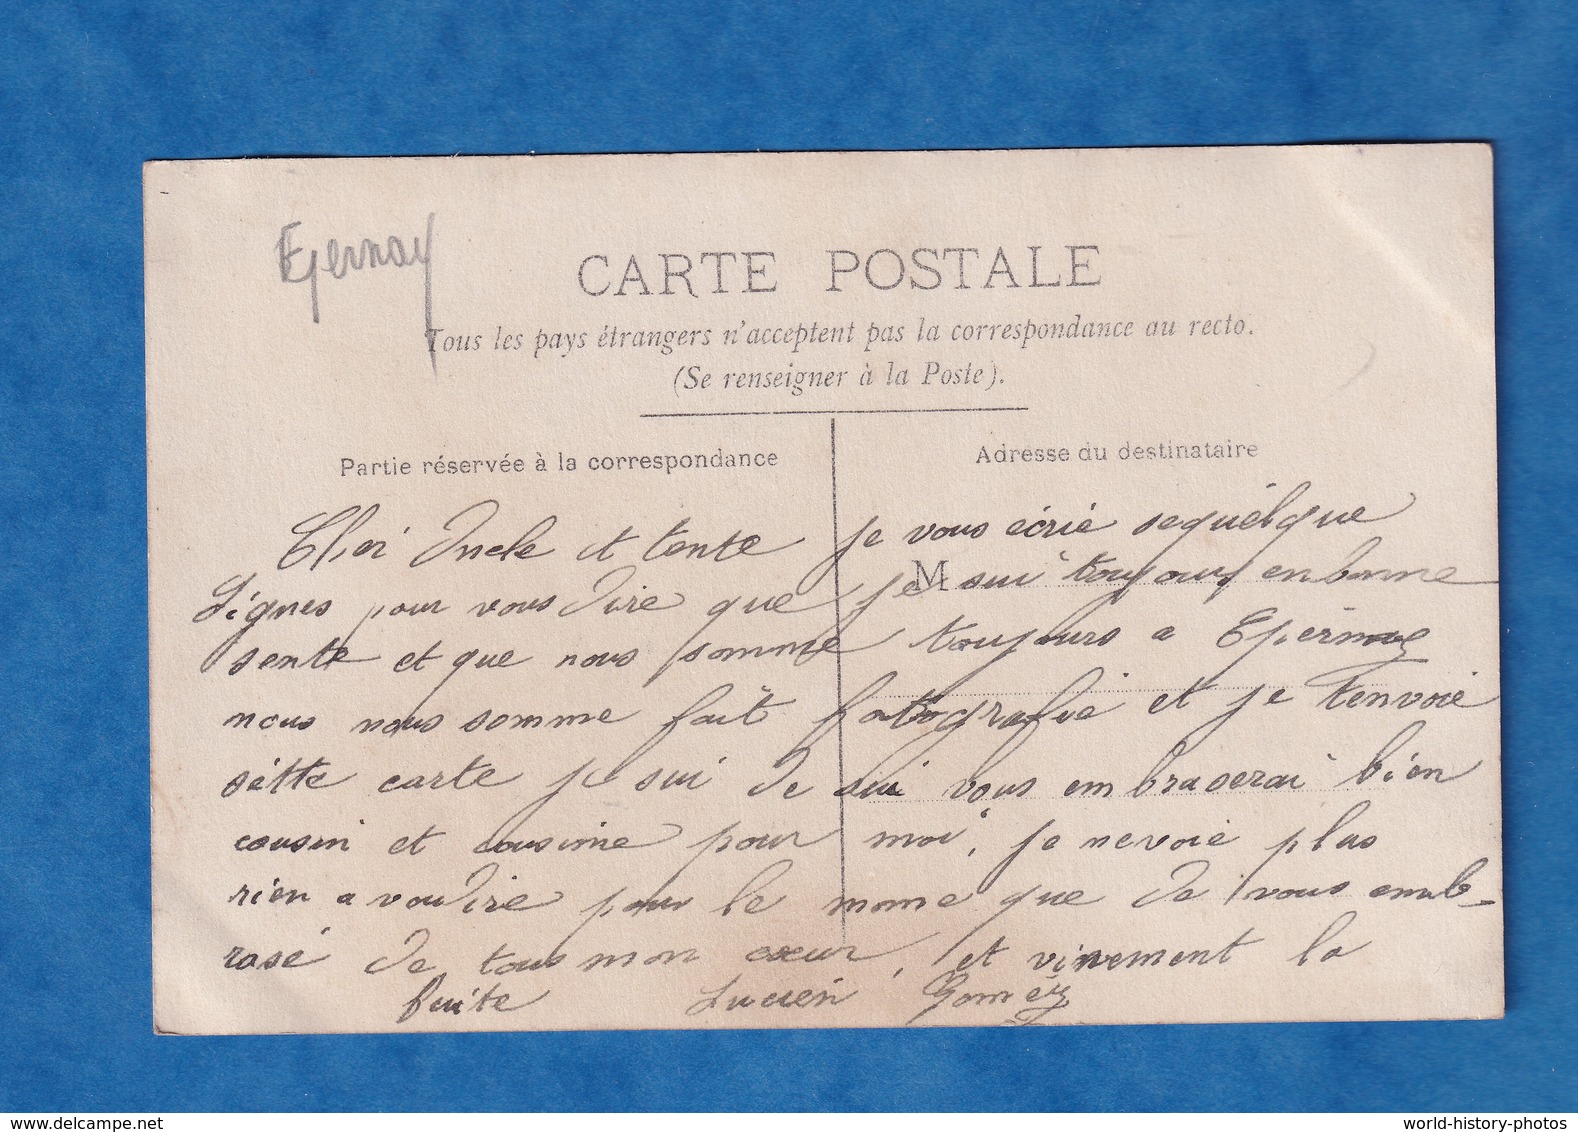 Epernay
CARTE POSTALE
Tous les pays étrangers n'acceptent pas la correspondance au recto.
(Se renseigner à la Poste).
Partie réservée à la correspondance
Adresse du destinataire
M
Cher Oncle et tente je vous écrie sequelque
Lignes pour vous dire que je sui toujours en bonne
sente et que nous somme toujours a Epernay
nous nous somme fait fotografié et je t'envoie
sétte carte je sui de sui vous embraserai bien
cousin et cousine pour moi, je ne voie plus
rien a vou dire pour le mome que de vous emb-
rasé de tous mon cœur, et vivement la
fuite Lucien Goméz
www.delcampe.net
world-history-photos